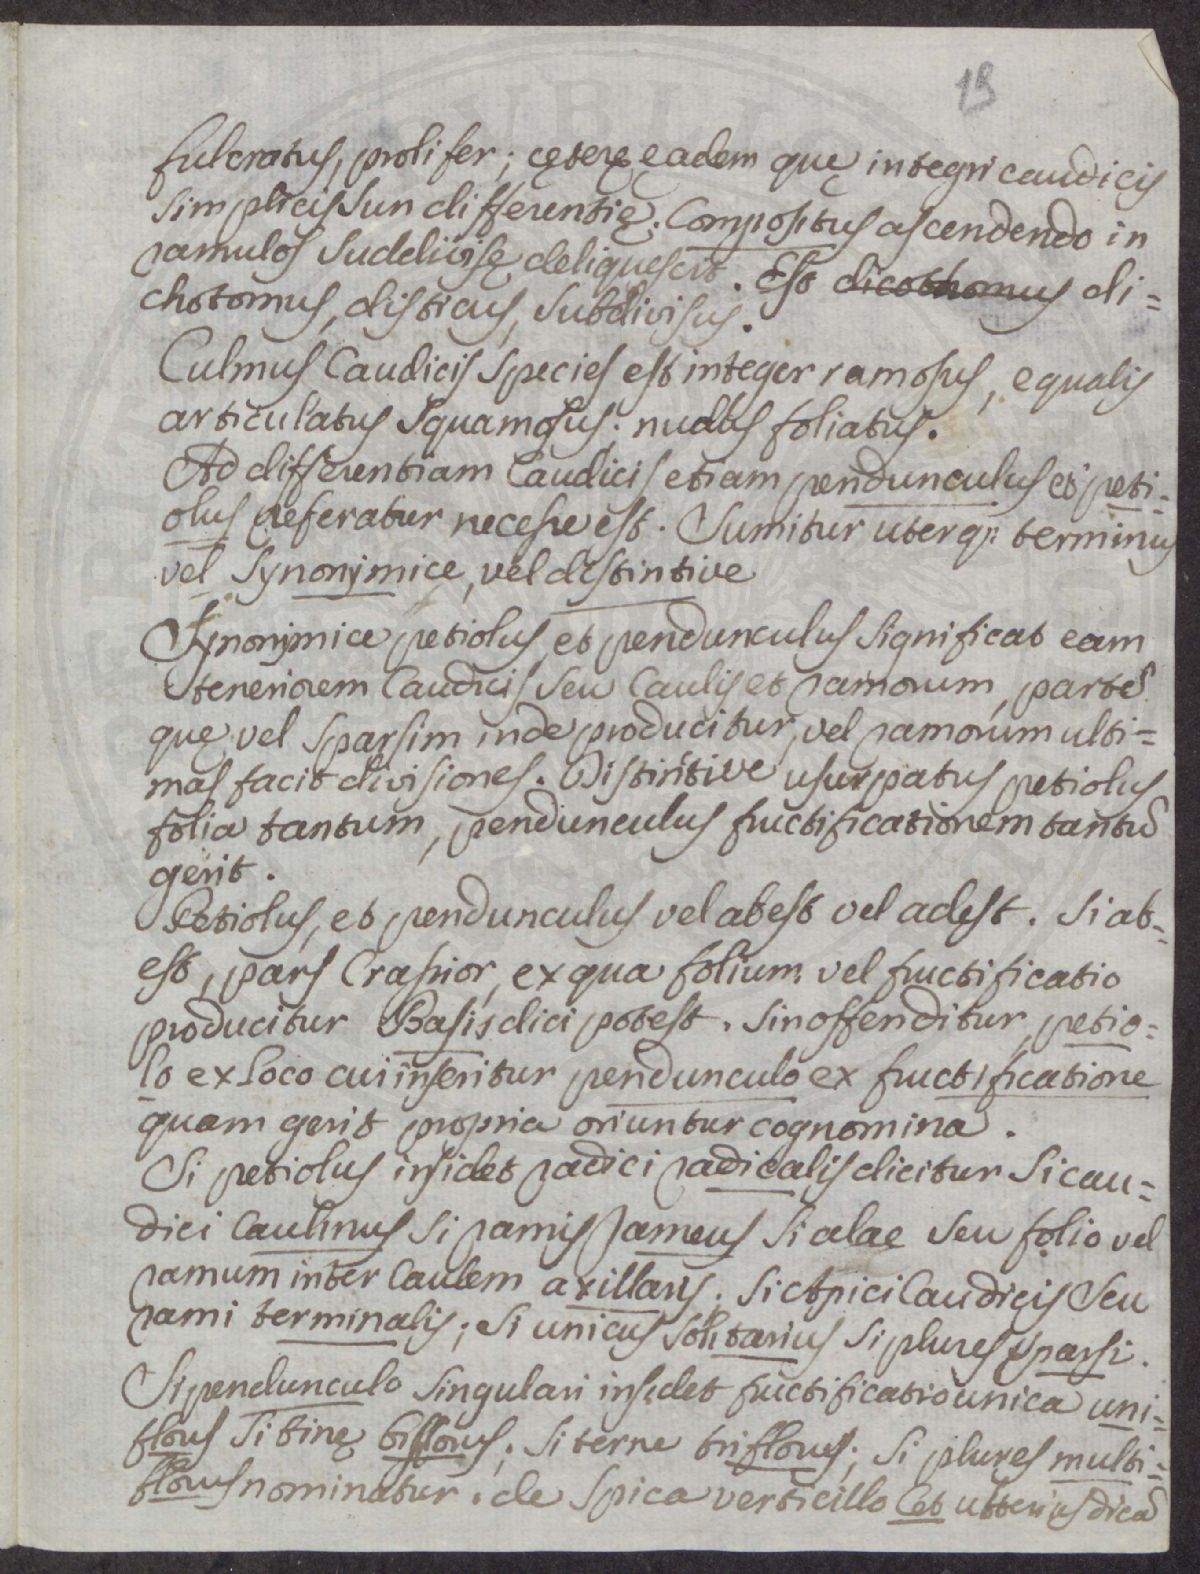 19
fulcratus, prolifer; cęterę ęadem quę integri caudicis
simplicis sun differentię. Compositus ascendendo in
ramulos sudelivisę deliquescit. Est dicothomus di=
chotomus, disticus, subdivisus.
Culmus Caudicis species est integer ramosus, equalis
articulatus squamosus; nudus foliatus.
Ad differentiam Caudicis etiam pendunculus et peti=
olus referatur necesse est. Sumitur uterq; terminus
vel synonymice, vel distintive
Synonymice petiolus et pendunculus significat eam
teneriorem Caudicis seu Caulis et ramorum, parte
quę vel sparsim inde producitur, vel ramorum ulti=
mas facit divisiones. Distintive usurpatus petiolus
folia tantum, pendunculus fructificationem tantũ
gerit.
Petiolus, et pendunculus vel abest vel adest. Si ab=
est, pars Crassior, ex qua folium vel fructificatio
producitur Basis dici potest. Sin offenditur, petio=
lo ex loco cui inseritur pendunculo ex fructificatione
quam gerit propria oriuntur cognomina.
Si petiolus insidet radici radicalis dicitur Si cau=
dici Caulinus si ramis rameus Si alae seu folio vel
ramum inter Caulem axillaris. Si Apici Caudicis seu
rami terminalis; Si unicus solitarius Si plures sparsi.
Si pendunculo singulari insidet fructificatio unica uni=
florus Si binę biflorus; Si terne triflorus; Si plures multi=
florus nominatur. de Spica verticillo Cet ulterius dicã